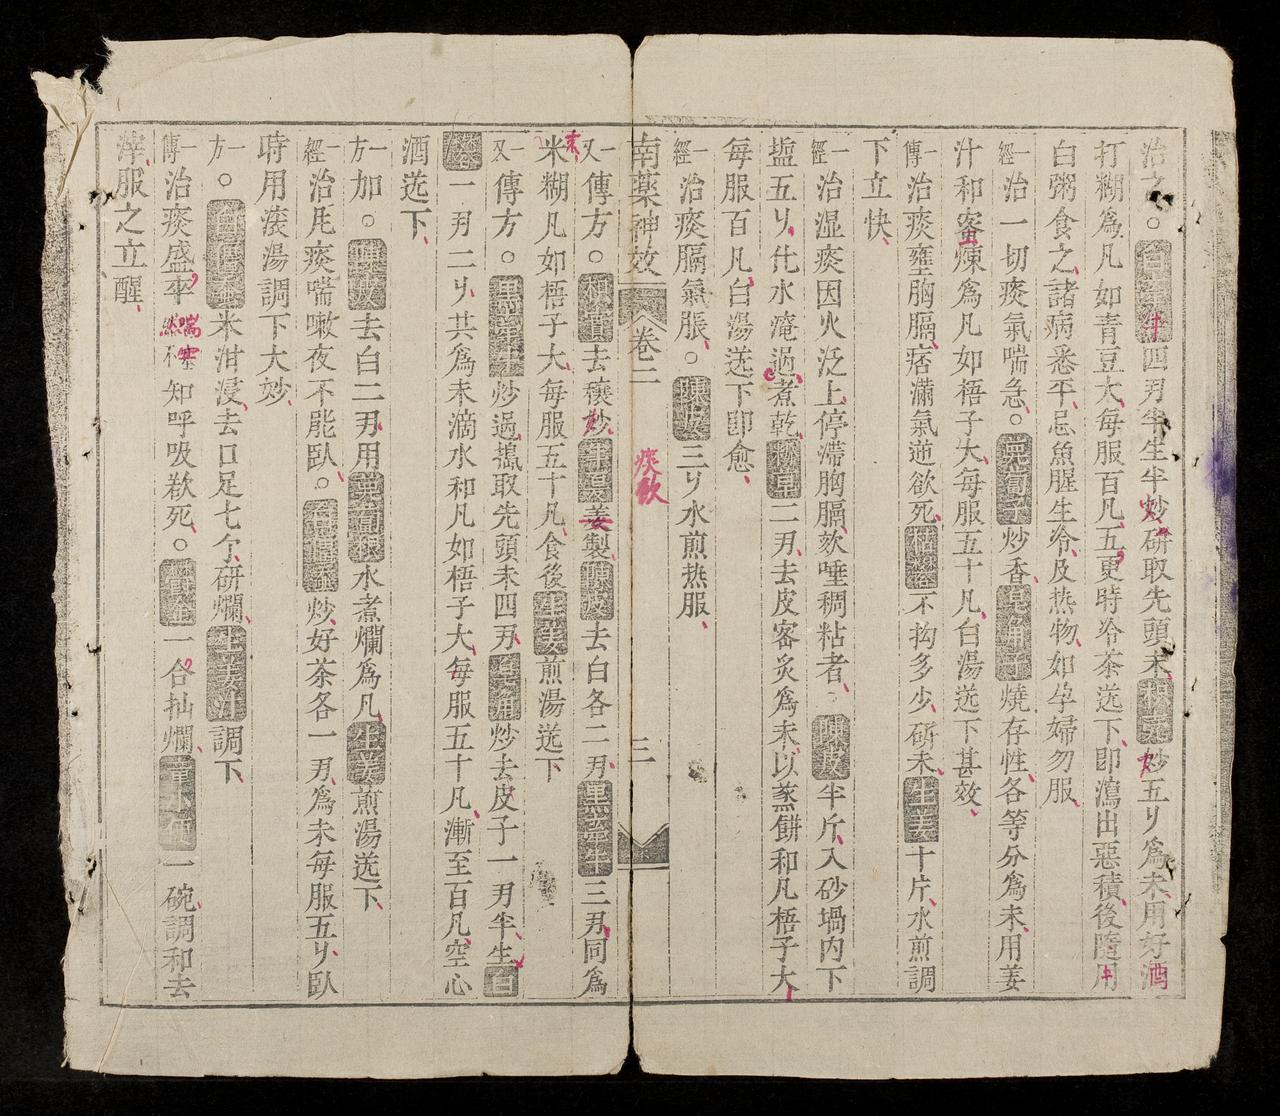 治之。四刄半生半炒研取先頭末炒五ﾘ為末用好酒
打糊為凡如青豆大每服百凡五更時冷茶送下即瀉出惡積後隨用
白粥食之諸病悉平忌魚腥生冷及热物如孕婦勿服
一經治一切痰氣喘急。炒香燒存性各等分為末用姜
汁和蜜煉為凡如梧子大每服五十凡白湯送下甚效
一傳治痰壅胸膈痞滿氣逆欲死不拘多少研末生姜十片水煎調
下立快
一經治湿痰因火泛上停滯胸膈欬唾稠粘者陳皮半斤入砂堝內下
塩五ﾘ化水淹過煮乾二刄去皮密炙為末以蒸餅和凡梧子大
每服百凡白湯送下即愈
一經治痰膈氣脹。陳皮三ﾘ水煎热服
南藥神效 卷二 痰飲 三
一又傳方。枳實去穰炒半夏姜製陳皮去白各二刄黑牽牛三刄同為
末
米糊凡如梧子大每服五十凡食後生姜煎湯送下
一又傳方。黑牽牛炒過搗取先頭末四刄皂角炒去皮子一刄半生白
一刄二ﾘ共為末滴水和凡如梧子大每服五十凡漸至百凡空心
酒送下
一方加。陳皮去白二刄用水煮爛為凡生姜煎湯送下
一經治凡痰喘嗽夜不能臥。炒好茶各一刄為末每服五ﾘ臥
時用滚湯調下大妙
一方。米泔浸去口足七个研爛生姜汁調下
一傳治痰盛卒然喘塞不知呼吸欲死。一合抽爛一碗調和去
滓服之立醒